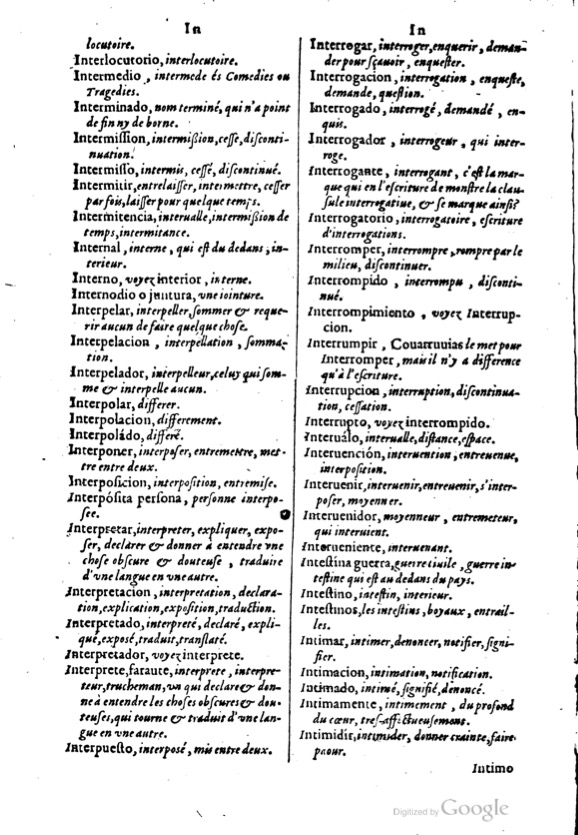 In
locutoire.
Interlocutorio, interlocutoire.
Intermedio, intermede és Comedies ou
Tragedies.
Interminado, nom terminé, qui n'a point
de fin ny de borne.
Intermission, intermißion, cesse, disconti-
nuation.
Intermisso, intermis, cessé, discontinué.
Intermitir, entrelaisser, intermettre, cesser
par fois, laisser pour quelque temps.
Intermitencia, interualle, intermißion de
temps, intermitance.
Internal, interne, qui est du dedans, in-
terieur.
Interno, voyez interior, interne.
Internodio o juntura, vne iointure.
Interpelar, interpeller, sommer & reque-
rir aucun de faire quelque chose.
Interpelacion, interpellation, somma-
tion.
Interpelador, interpelleur, celuy qui som-
me & interpelle aucun.
Interpolar, differer.
Interpolacion, differement.
Interpoládo, differé.
Interponer, interposer, entremettre, met-
tre entre deux.
Interposicion, interposition, entremise.
Interpósita persona, personne interpo-
see.
Interpretar, interpreter, expliquer, expo-
ser, declarer & donner à entendre vne
chose obscure & douteuse, traduire
d'vne langue en vne autre.
Interpretacion, interpretation, declara-
tion, explication, exposition, traduction.
Interpretado, interpreté, declaré, expli-
qué, exposé, traduit, translaté.
Interpretador, voyez interprete.
Interprete, faraute, interprete, interpre-
teur, trucheman, vn qui declare & don-
ne à entendre les choses obscures & dou-
teuses, qui tourne & traduit d'vne lan-
gue en vne autre.
Interpuesto, interposé, mis entre deux.
In
Interrogar, interroger, enquerir, deman-
der pour sçauoir, enquester.
Interrogacion, interrogation, enqueste,
demande, question.
Interrogado, interrogé, demandé, en-
quis.
Interrogador, interrogeur, qui inter-
roge.
Interrogante, interrogant, c'est la mar-
que qui en l'escriture de monstre la clau-
sule interrogatiue, & se marque ainsi?
Interrogatorio, interrogatoire, escriture
d'interrogations.
Interromper, interrompre, rompre par le
milieu, discontinuer.
Interrompido, interrompu, disconti-
nué.
Interrompimiento, voyez Interrup-
cion.
Interrumpir, Couarruuias le met pour
Interromper, mais il n'y a difference
qu'à l'escriture.
Interrupcion, interruption, discontinua-
tion, cessation.
Interrupto, voyez interrompido.
Interuálo, interualle, distance, espace.
Interuención, interuention, entreuenue,
interposition.
Interuenir, interuenir, entreuenir, s'inter-
poser, moyenner.
Interuenidor, moyenneur, entremeteur,
qui interuient.
Interueniente, interuenant.
Intestina guerra, guerre ciuile, guerre in-
testine qui est au dedans du pays.
Intestino, intestin, interieur.
Intestinos, les intestins, boyaux, entrail-
les.
Intimar, intimer, denoncer, notifier, signi-
fier.
Intimacion, intimation, notification.
Intimado, intimé, signifié, denoncé.
Intimamente, intimement, du profond
du cœur, tres-affectueusement.
Intimidir, intimider, donner crainte, faire
paour.
Intimo
Digitized by Google